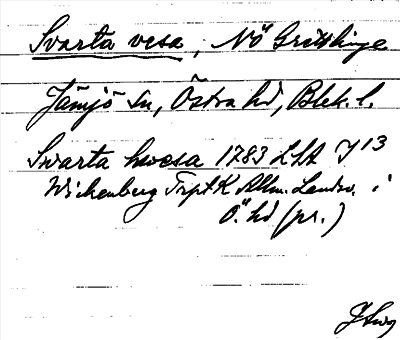 Svarta vesa, NÖ Gretslinge
Jämjö sn, Östra hd, Blek. l.
Svarta hwesa 1783 LSA J 13
Wickenberg Trpt K Allm. Landsv. i
Ö. hd (pr.)